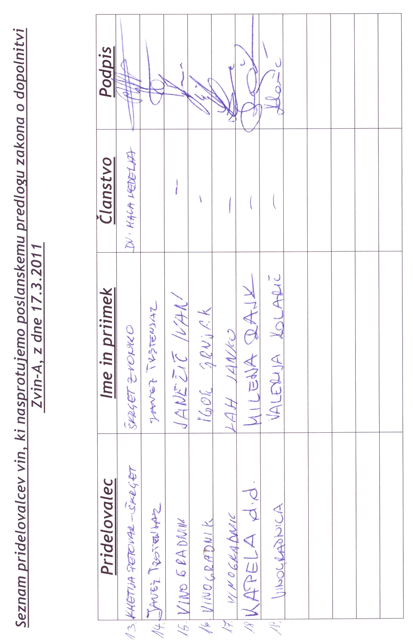 Seznam pridelovalcev vin, ki nasprotujemo poslanskemu predlogu zakona o dopolnitvi
Zvin-A, z dne 17.3.2011
Pridelovalec Ime in priimek Članstvo Podpis
13 KMETIJA PETOVAR-ŠKRGET ŠKRGET ZVONKO DV. MALA NEDELJA
14. JANEZ
15 VINOGRADNIK JANEŽIČ IVAN --
16 VINOGRADNIK IGOR -
17. VINOGRADNIK LAH JANKO -
18 KAPELA d.d. MILENA RAJK -
19. VINOGRADNICA VALERIJA KOLARIČ -